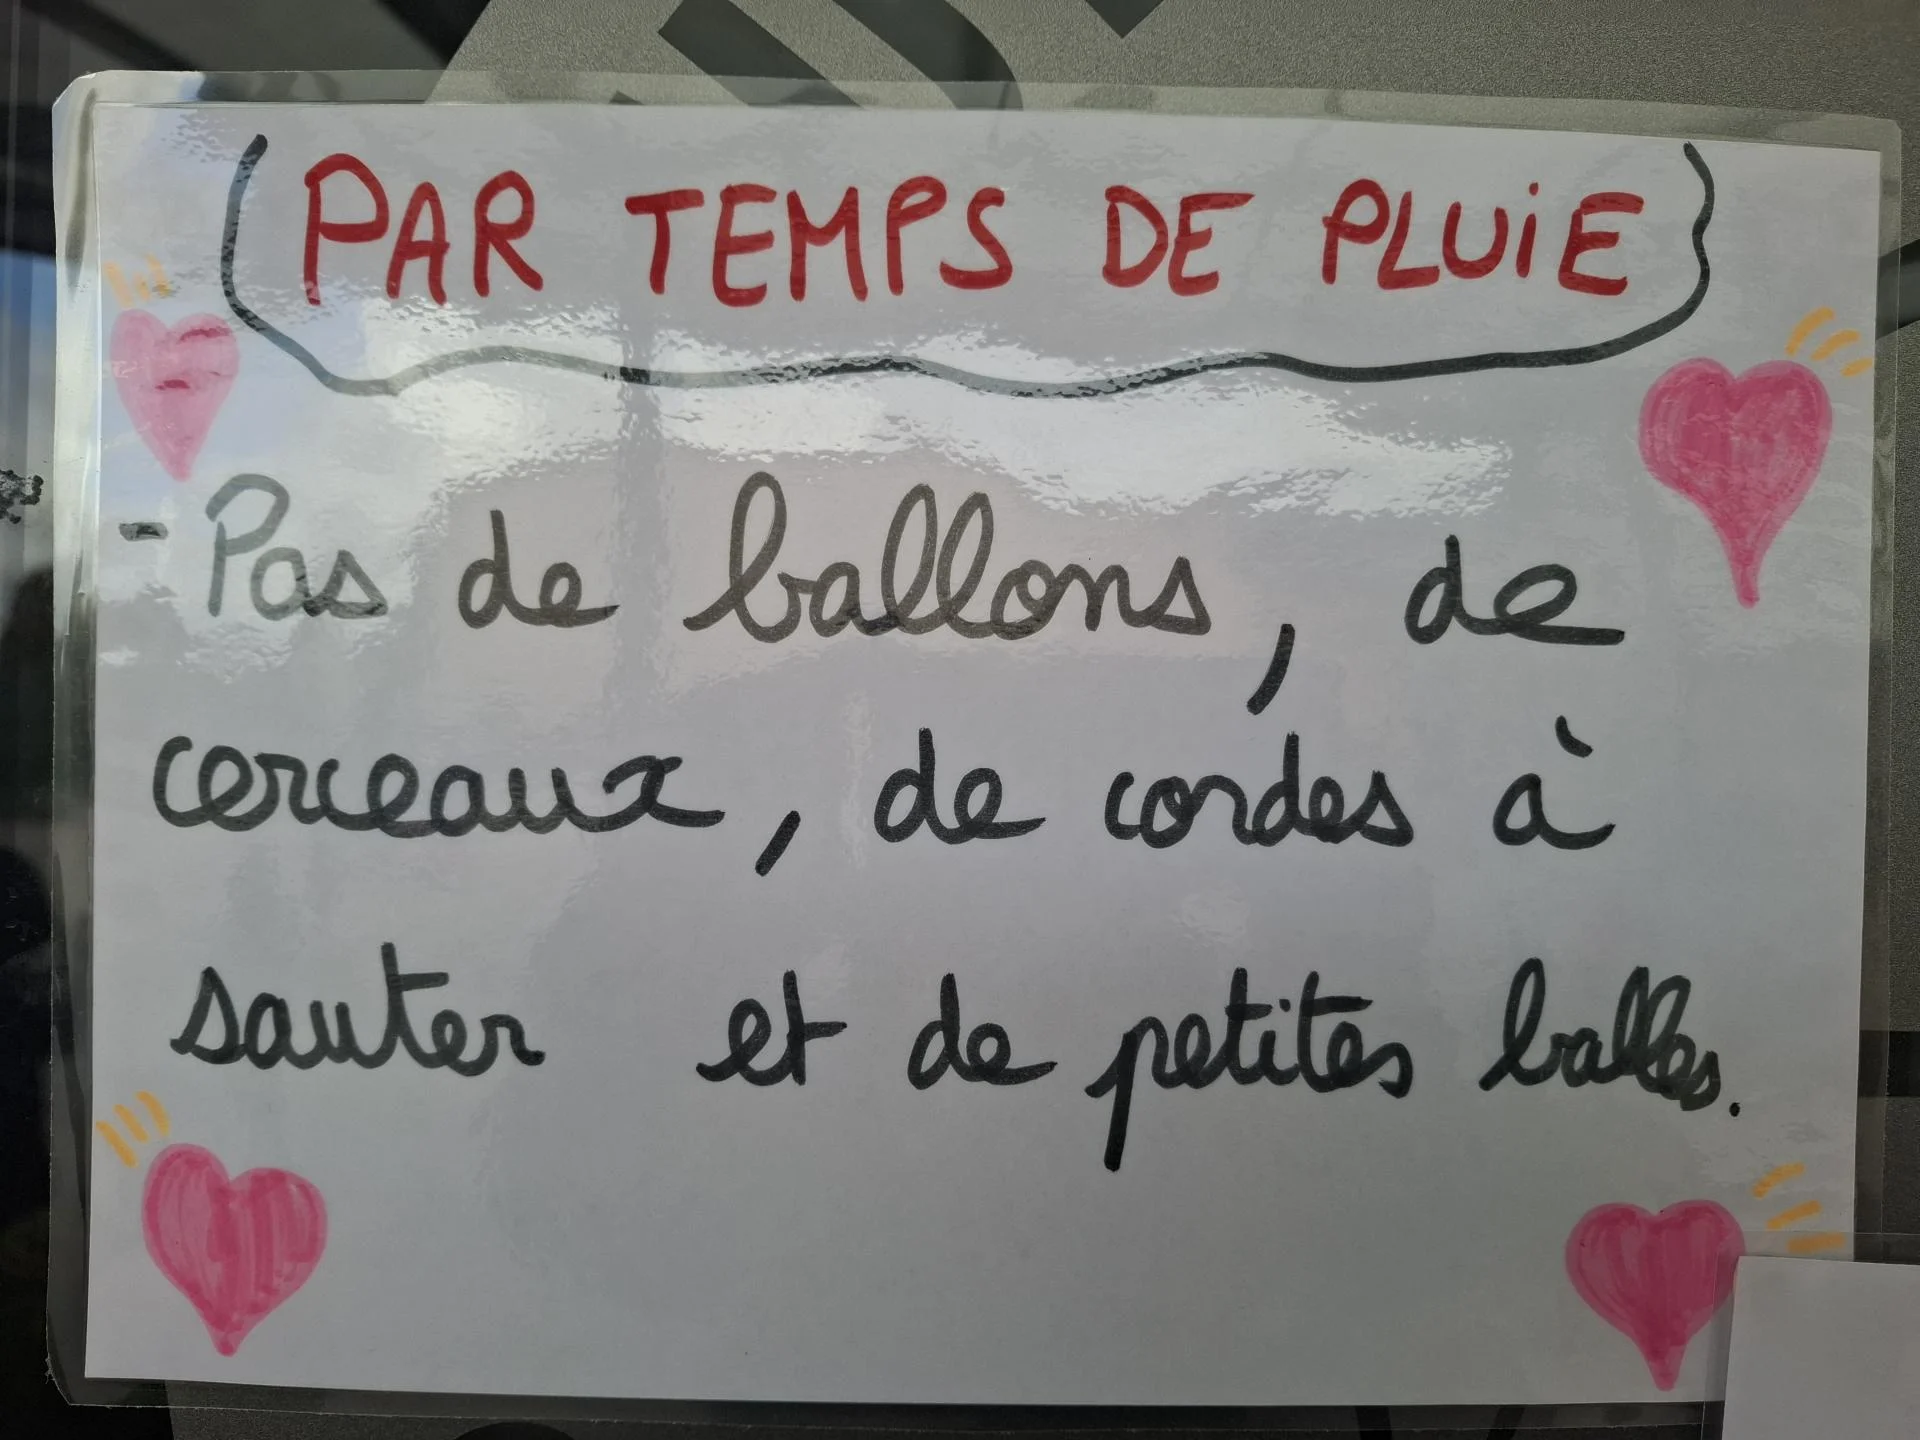 PAR TEMPS DE PLUiE
- Pas de ballons, de
cerceaux, de cordes à
sauter et de petites balles.